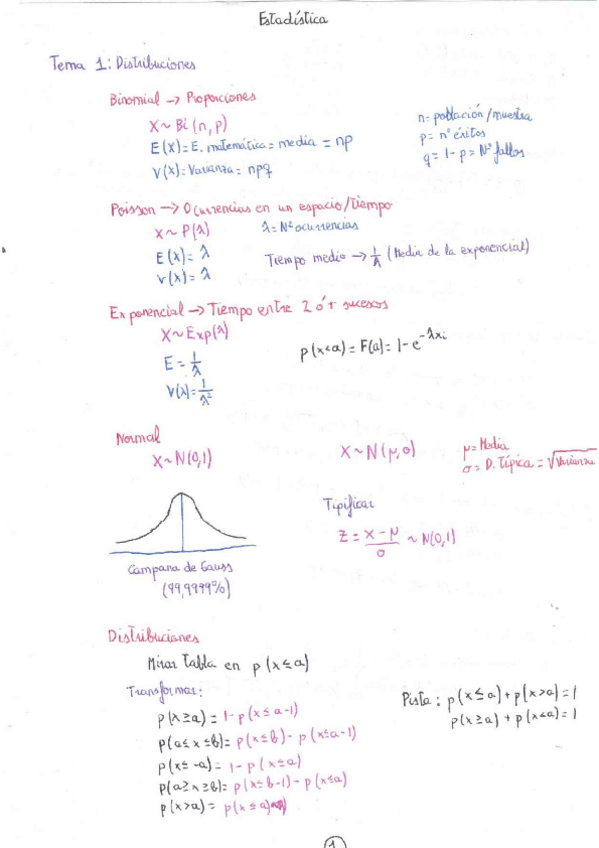 Estadística
Tema 1: Distribuciones
Binomial → Proporciones
X ~ Bi (n, p)
E (X) = E. matemática = media = np
V (X) = Varianza = npq
n = población / muestra
p = nº éxitos
q = 1 - p = Nº fallos
Poisson → Ocurrencias en un espacio/tiempo
X ~ P(λ)
λ = Nº ocurrencias
E (X) = λ
V (X) = λ
Tiempo medio → 1/λ (Media de la exponencial)
Exponencial → Tiempo entre 2 ó + sucesos
X ~ Exp(λ)
E = 1/λ
V(X) = 1/λ²
p(x<a) = F(a) = 1 - e^-λxi
Normal
X ~ N(0,1)
X ~ N(μ,σ)
μ = Media
σ = D. Típica = √Varianza
Tipificar
Z = (X - μ)/σ ~ N(0,1)
Campana de Gauss
(99,9999%)
Distribuciones
Mirar tabla en p(x≤a)
Transformar:
p(x≥a) = 1 - p(x≤a-1)
p(a≤x≤b) = p(x≤b) - p(x≤a-1)
p(x≤-a) = 1 - p(x≤a)
p(a≥x≥b) = p(x≤b-1) - p(x≤a)
p(x>a) = p(x≤a)
Pista: p(x≤a) + p(x>a) = 1
p(x≥a) + p(x<a) = 1
1